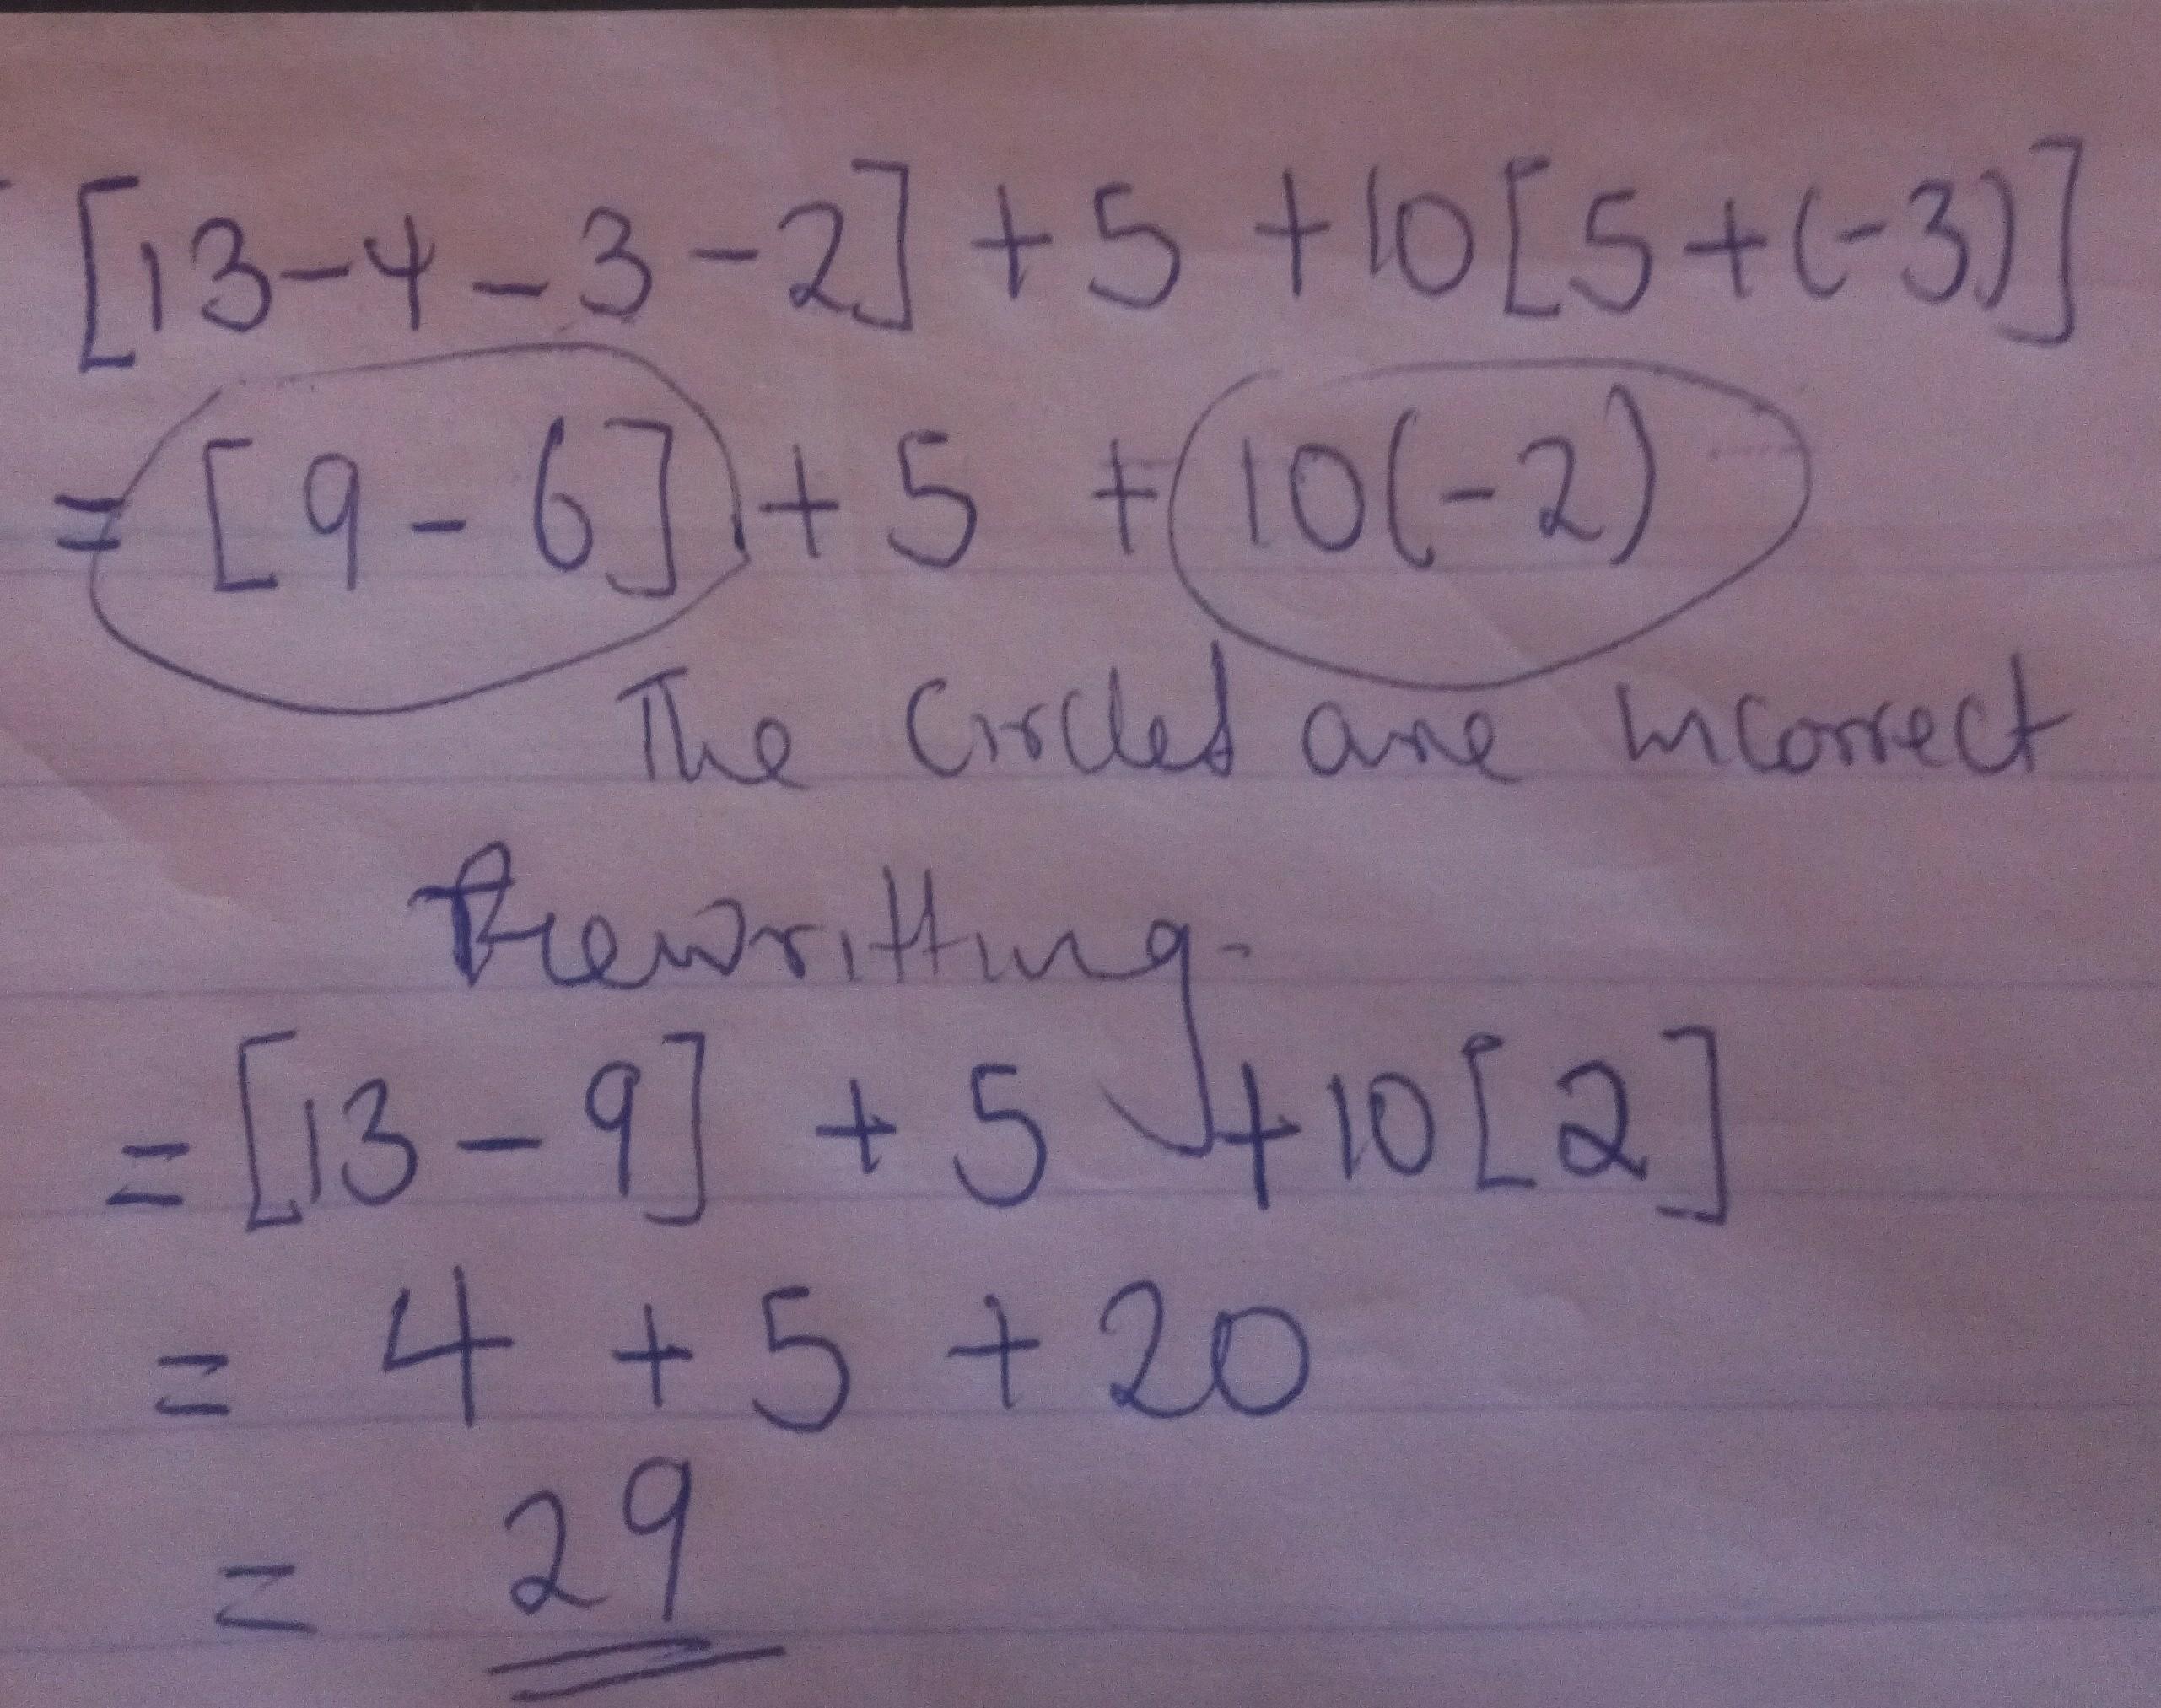 [13-4-3-2] +5 +10[5+(-3)]
= [9-6] + 5 + 10(-2)
The Circled are incorrect
Rewritting.
= [13-9] + 5 +10[2]
= 4 + 5 + 20
= 29